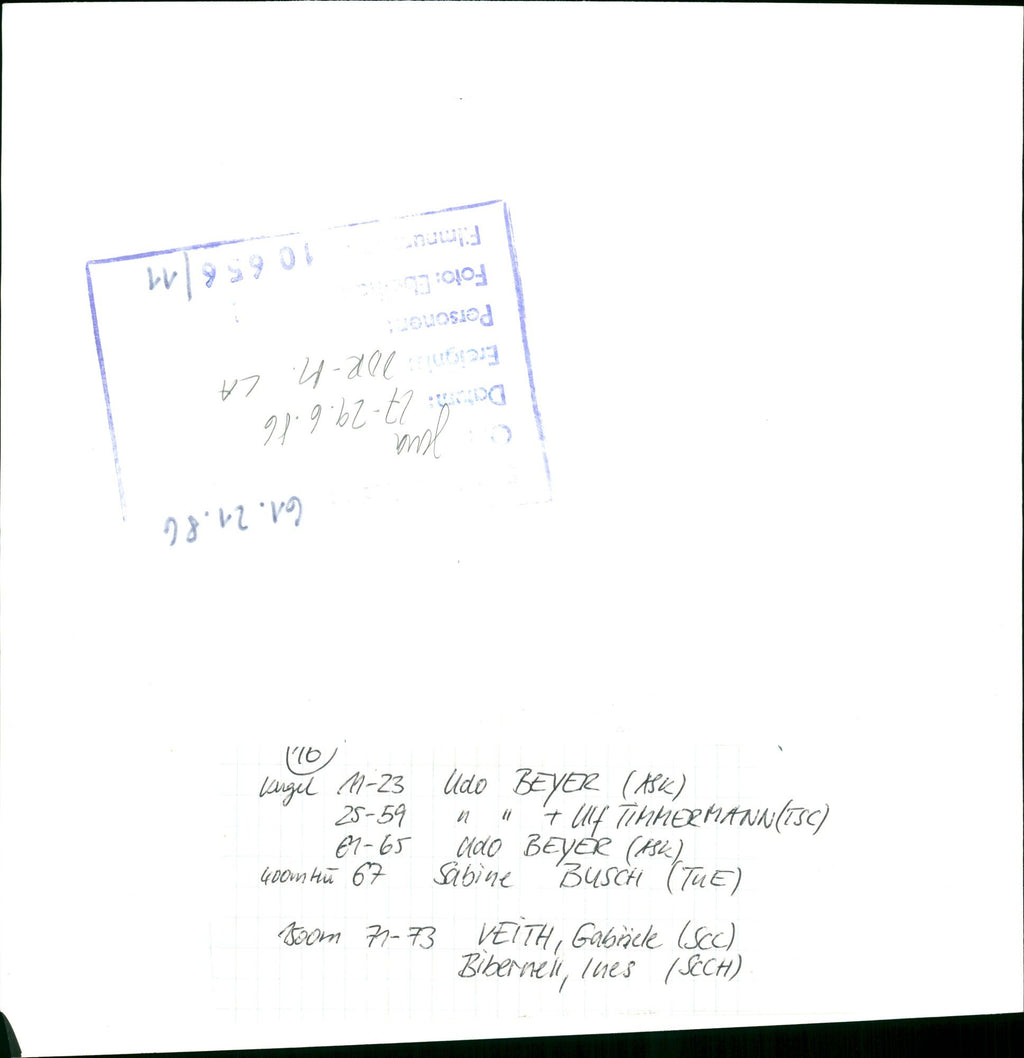 Filmnu
10 656/11
Foto: Ebe
Personen:
Ereignis: DDR-M. LA
Datum: 27-29.6.86
Jena
61.21.86
10
Kugel 11-23 Udo BEYER (ASK)
25-59 " " + Ulf TIMMERMANN (TSC)
61-65 Udo BEYER (ASK)
400mHü 67 Sabine BUSCH (TuE)
1500m 71-73 VEITH, Gabriele (SCC)
Bibernell, Ines (SCCH)